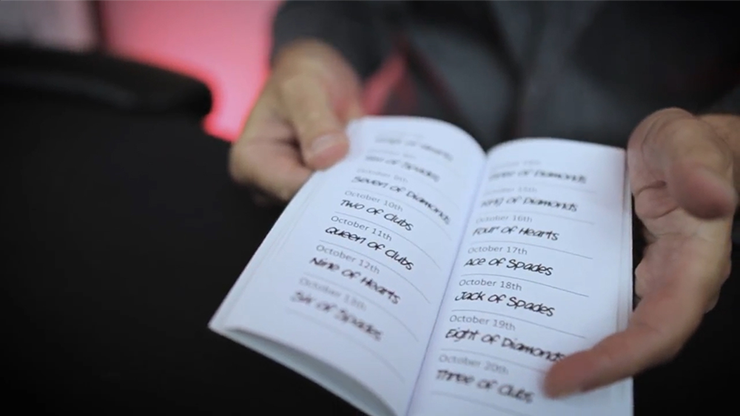 of Hearts
of Spades
October 9th
Seven of Diamonds
October 10th
Two of Clubs
October 11th
Queen of Clubs
October 12th
Nine of Hearts
October 13th
Six of Spades
of Diamonds
October 15th
King of Diamonds
October 16th
Four of Hearts
October 17th
Ace of Spades
October 18th
Jack of Spades
October 19th
Eight of Diamonds
October 20th
Three of Clubs